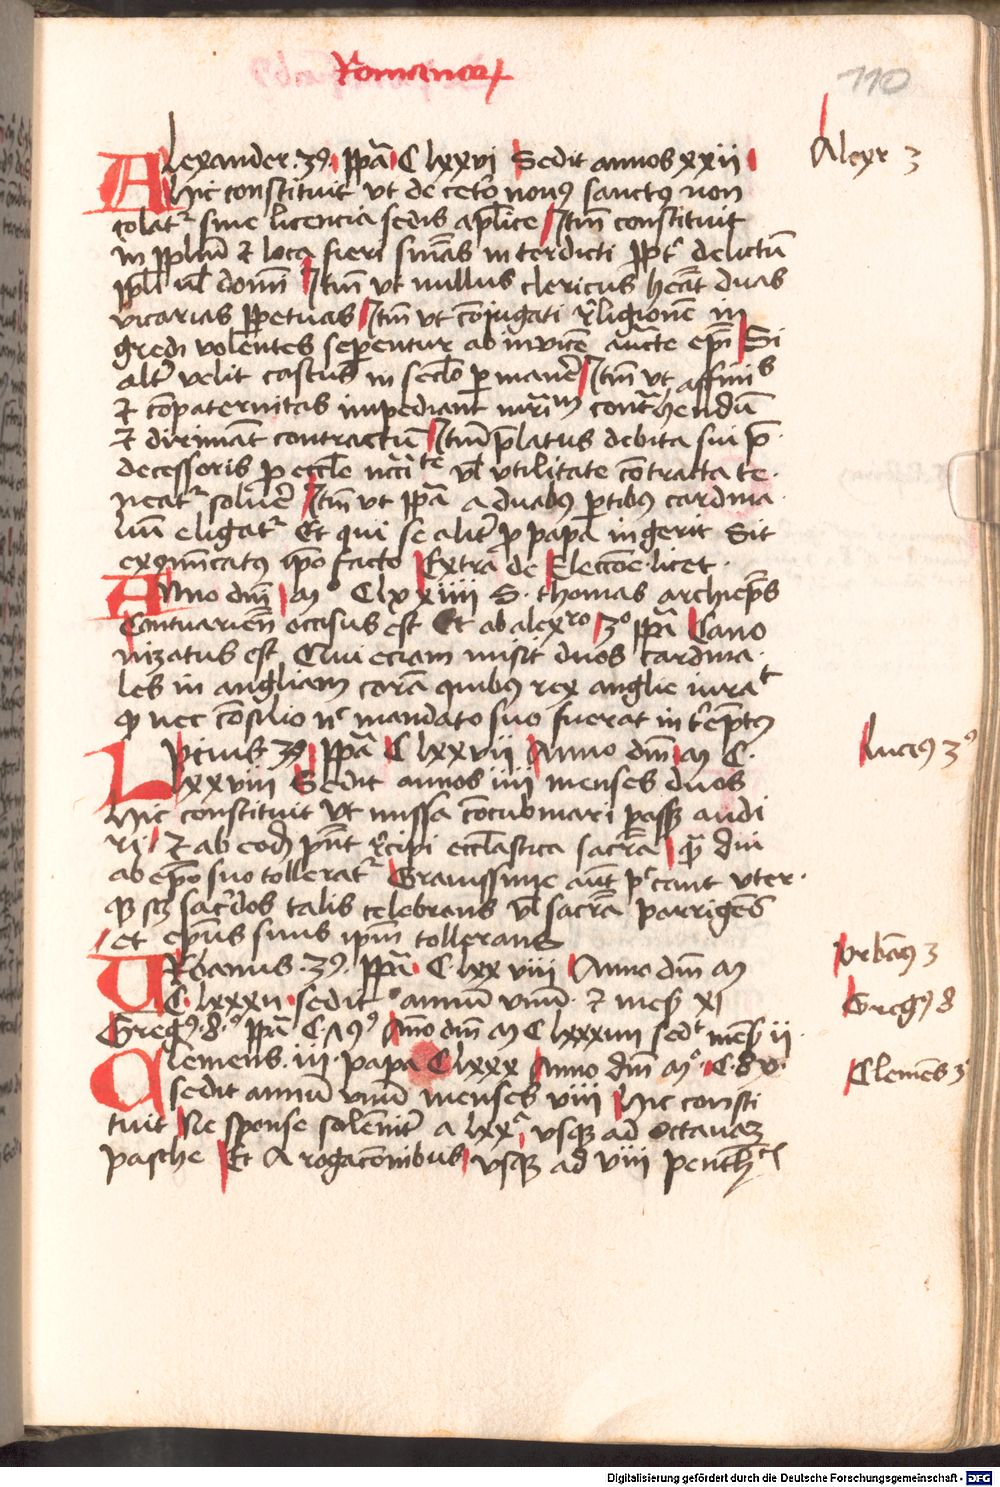 Romanorum
110
Alexander · 3us ppā C lxxvi Sedit annos xxii
Alexr 3
Hic constituit vt de cetero nouus sanctus non
colatr sine licencia sedis aplice Itm constituit
in pplm et loca fieri smās interdicti ppt delictū
ppli vl domī Itm vt nullus clericus heāt duas
vicarias ppetuas Itm vt coniugati religionē in
gredi volentes seperentur ab inuicē aucte epī Si
alter velit castus in seclo permanere Itm vt affinis
et cōpaternitas impediant mrim contrahendū
et dirimāt contractum Itm platus debita sui p
decessoris p eccle ncitate vl vtilitate cōtracta te
neatr soluere Itm vt ppā a duabus ptibus cardina
liū eligatr Et qui se aliter p papā ingerit Sit
excōicatus ipo facto Extra de Eleccōe licet ·
Anno dm mo Clxxiiii S · thomas archiepūs
Cantuarien occisus est Et ab alexro 3o ppā Cano
nizatus est Qui eciam misit duos cardina
les in angliam corā quibus rex anglie iurat
qp nec cōsilio nec mandato suo fuerat interēptus
Lucius · 3us ppā C lxxvii Anno dm m C ·
Lucius 3us
lxxviii Sedit annos iiii menses duos
Hic constituit vt missā cōcubinarii possit audi
ri et ab eodē pnt recipi eccliastica sacrā qp diu
ab epō suo tolleratr Grauissime aut peccant vter
qp sacerdos talis celebrans vl sacrā porrigens
et epūs suus ipm tollerans
Vrbanus · 3us ppā · C lxxviii Anno dm m
Vrbanus 3
C · lxxxii sedit annū vnū · et mens xi
Gregus 8
Gregus · 8us ppā C Ano dm m C lxxxiiii sedt mens ii ·
Clemens · iii · papa C lxxx Anno dm mo · C · 8v ·
Clemēs 3
sedit annū vnū menses viii Hic consti
tuit Ne sponse solēniter a lxxa vsqp ad octauas
pasche Et A rogacōnibus vsqp ad viii penthes
Digitalisierung gefördert durch die Deutsche Forschungsgemeinschaft - DFG